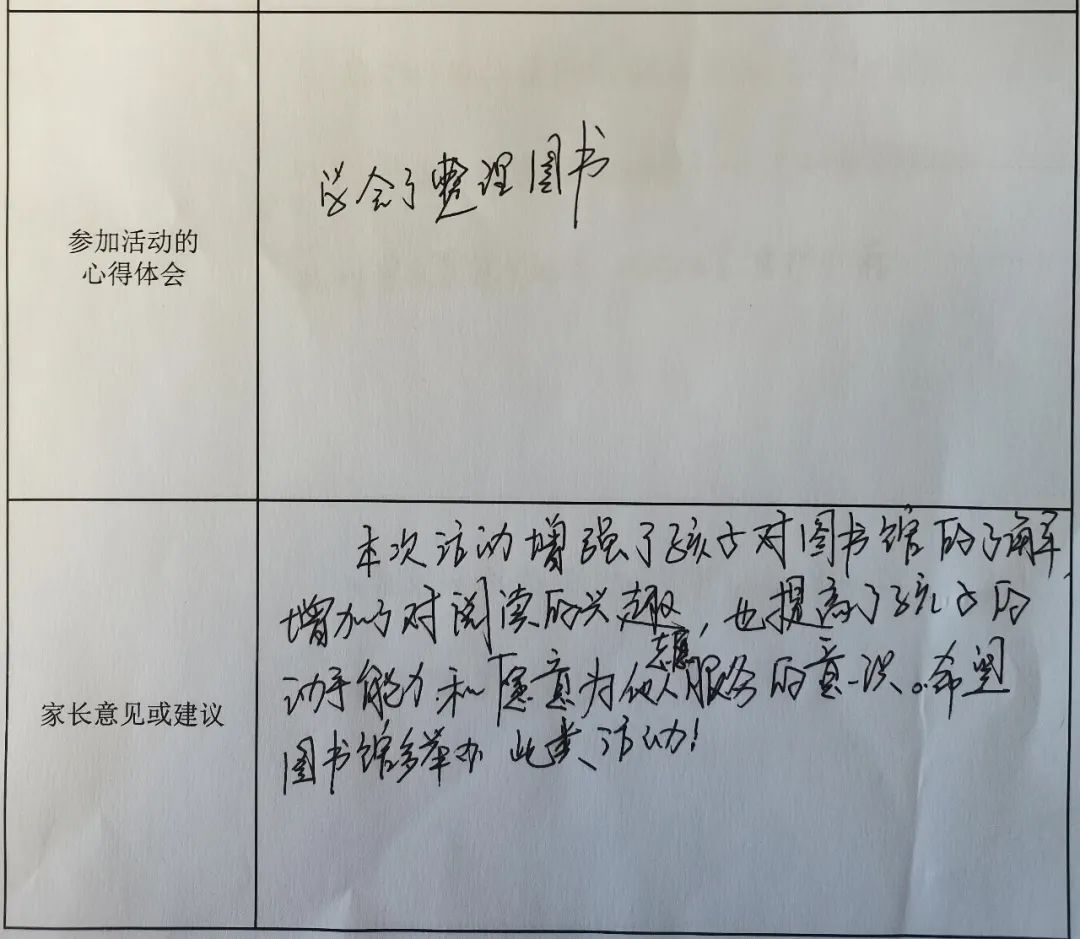 参加活动的
心得体会
学会了整理图书
家长意见或建议
本次活动增强了孩子对图书馆的了解,
增加了对阅读的兴趣,也提高了孩子的
动手能力和愿意为他人志愿服务的意识。希望
图书馆多举办此类活动!